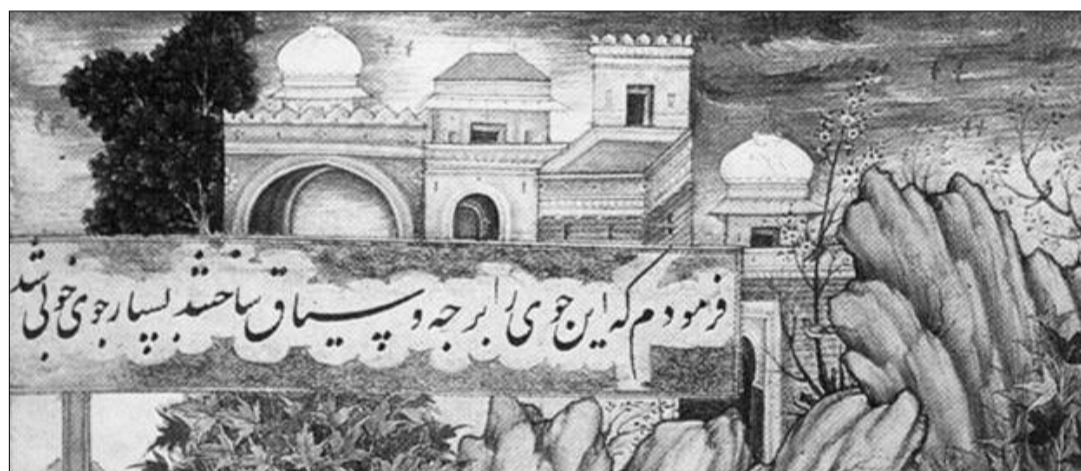 فرمودم که این جوی را برجه و سیاق ساختند بسیار جوی خوبی شد